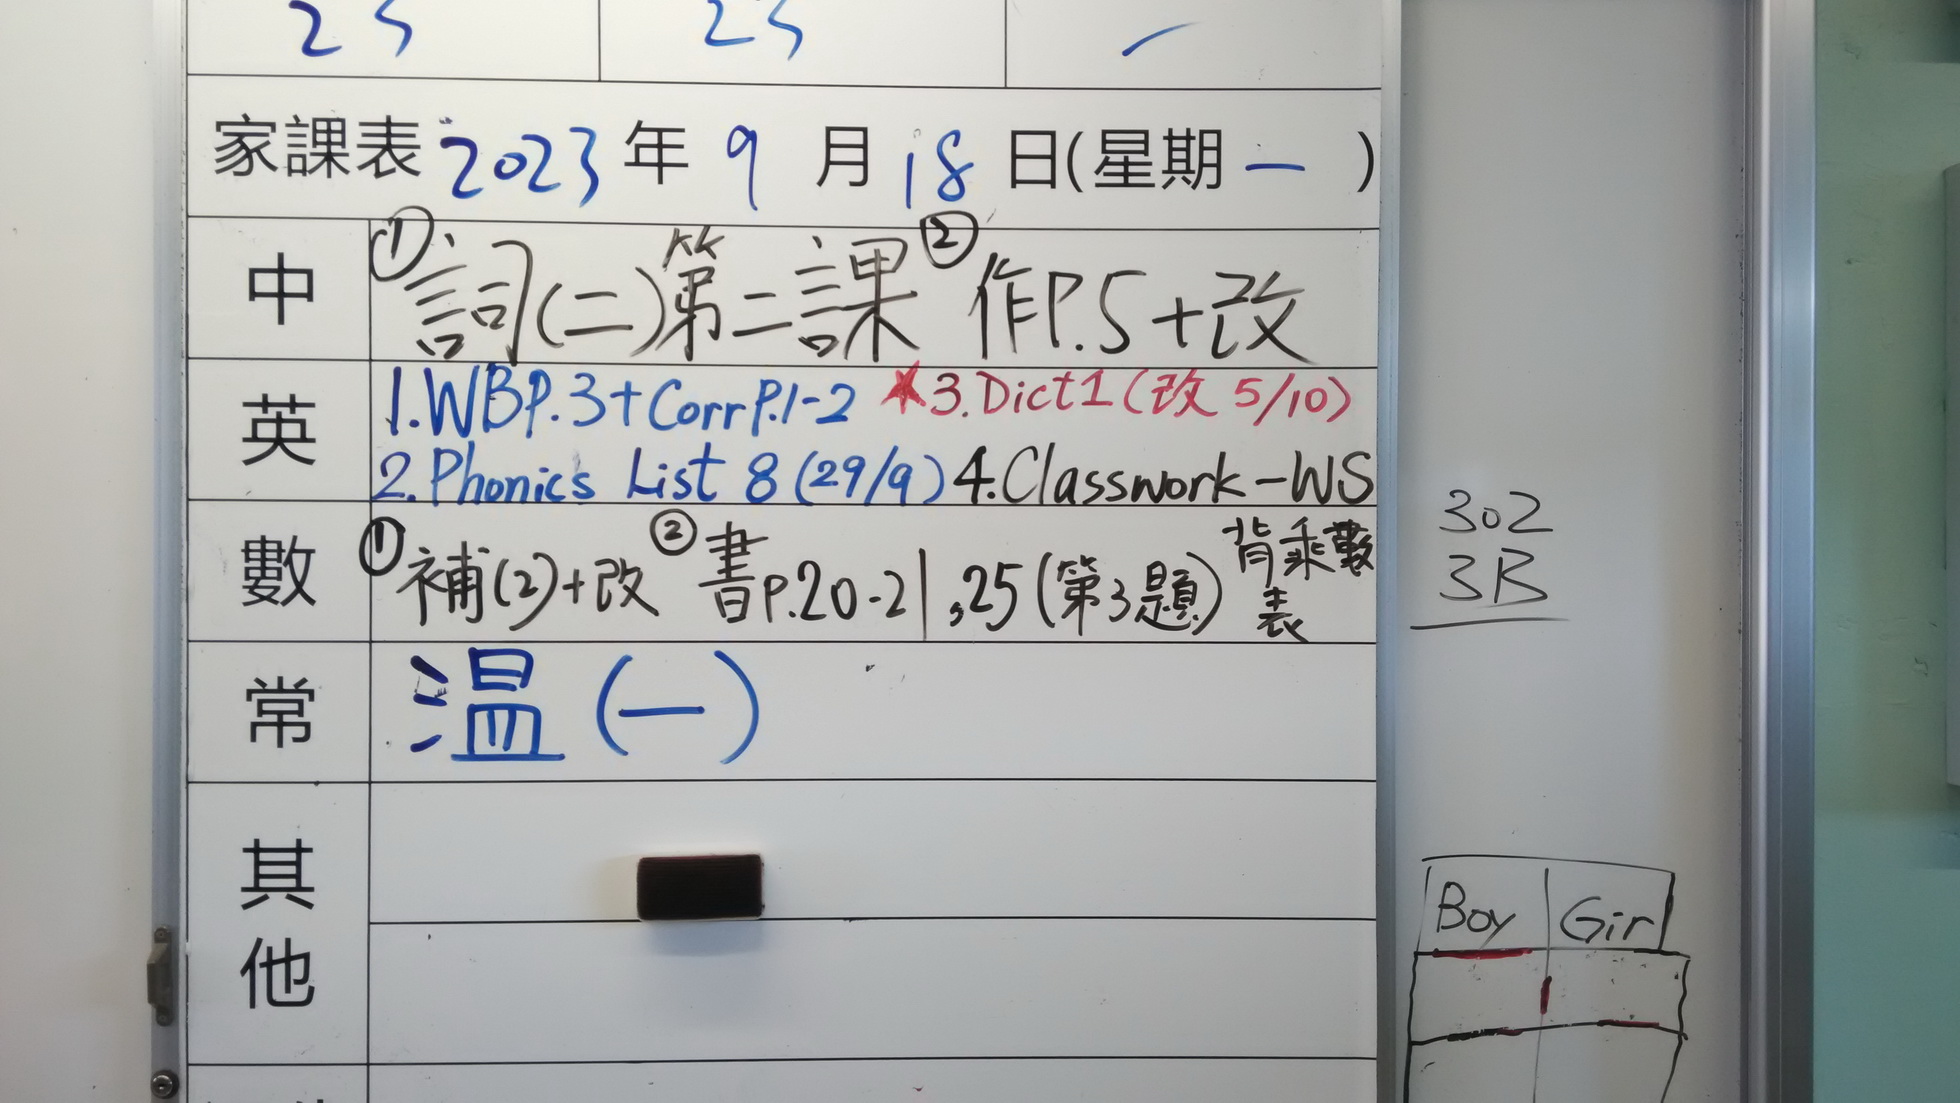 23 23 /
家課表 2023 年 9 月 18 日(星期 一 )
中 ① 詞(二)第二課 ② 作P.5+改
英 1.WBP.3+Corr P.1-2 ★3.Dict1(改 5/10)
2.Phonics List 8 (29/9) 4.Classwork-WS
數 ① 補(2)+改 ② 書P.20-21,25(第3題) 背乘數
表
常 溫(一)
其
他
302
3B
Boy Gir